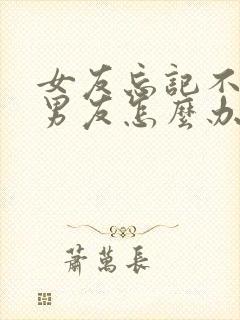 女友忘記不
男友怎麼办
蕭萬長